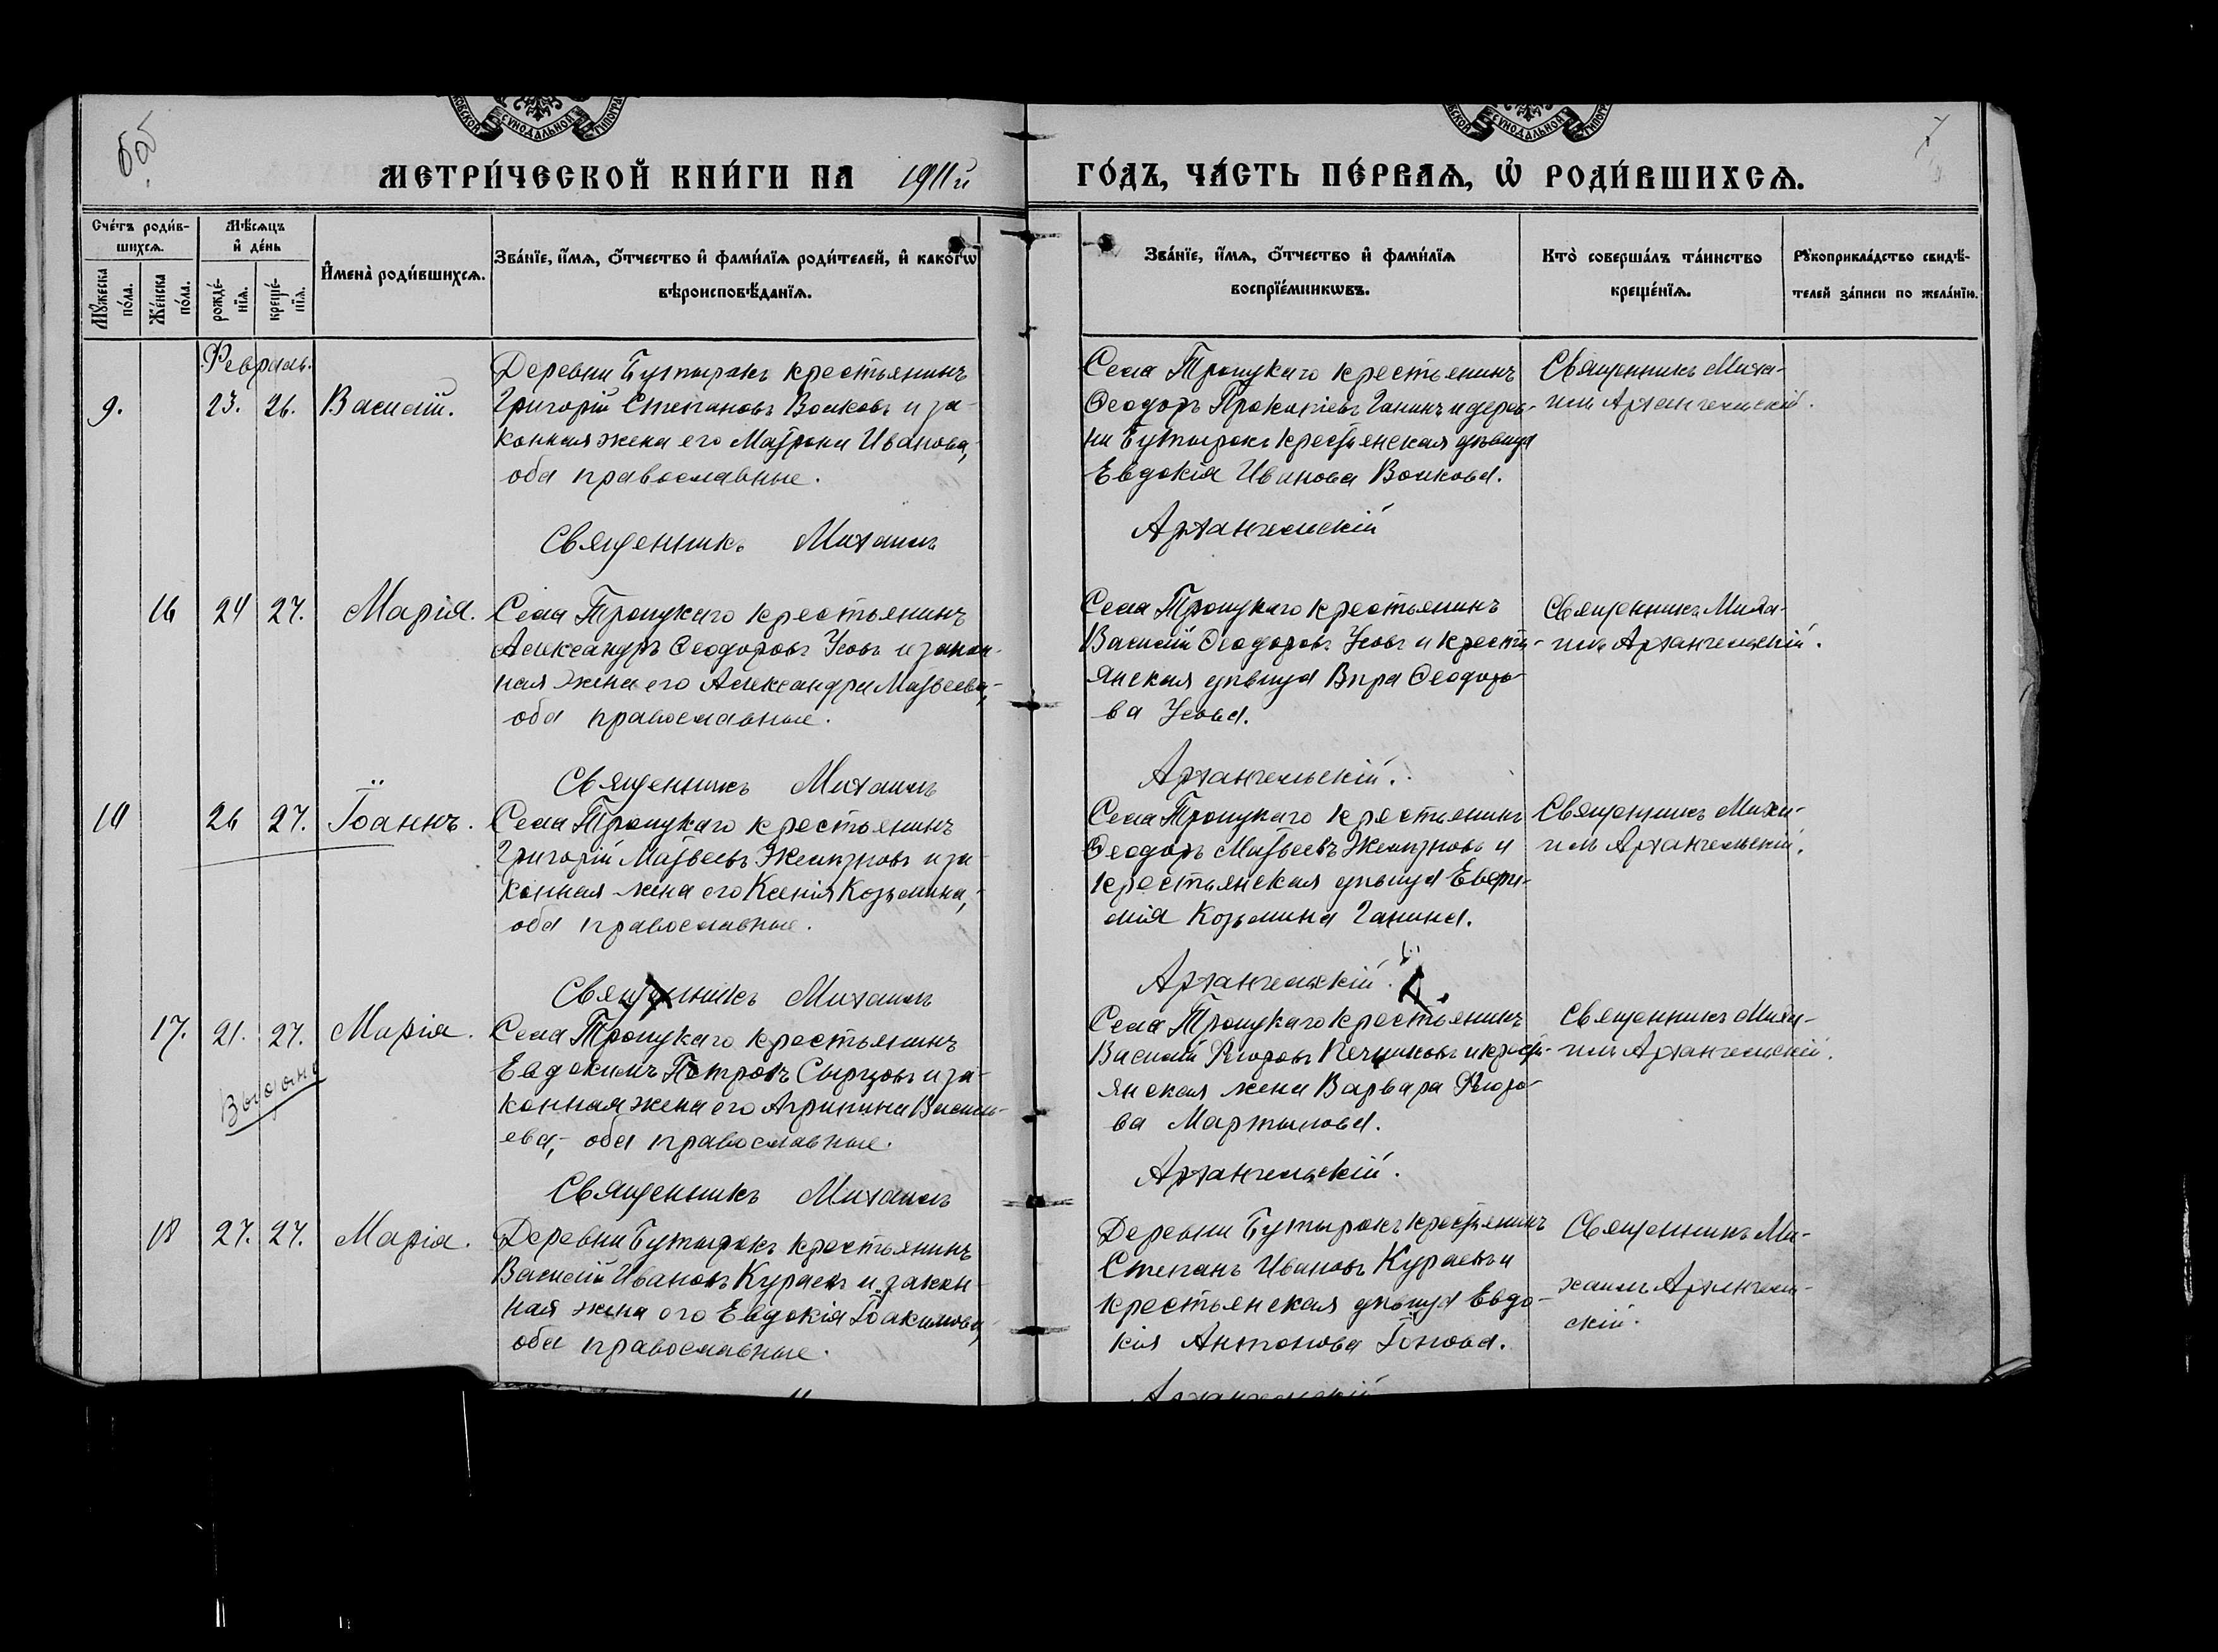 МЕТРИ́ЧЕСКОЙ КНИ́ГИ НА 1911й ГО́ДЪ, ЧА́СТЬ ПЕ́РВАЯ, Ѿ РОДИ́ВШИХСЯ.
Сче́тъ роди́в-
шихся.
Мꙋжеска по́ла.
Же́нска по́ла.
Мѣсяцъ
и҆ де́нь
рожде́-
нїя.
креще́-
нїя.
И҆мена̀ роди́вшихся.
Зва́нїе, и҆́мя, ѻ҆́тчество и҆ фами́лїя роди́телей, и҆ како́гѡ
вѣроисповѣ́данїя.
Зва́нїе, и҆́мя, ѻ҆́тчество и҆ фами́лїя
воспрїе́мникѡвъ.
Кто̀ соверша́лъ та́инство
креще́нїя.
Рꙋкоприкла́дство свидѣ́-
телей за́писи по жела́нїю.
Февраль.
9.
23.
26.
Василій.
Деревни Бутырокъ крестьянинъ
Григорій Степановъ Волковъ и за-
конная жена его Матрона Иванова,
оба православные.
Села Троицкаго крестьянинъ
Ѳеодоръ Прокопіевъ Ганинъ и дерев-
ни Бутырокъ крестьянская дѣвица
Евдокія Иванова Волкова.
Священникъ Миха-
илъ Архангельскій.
Священникъ Михаилъ Архангельскій
16
24
27.
Марія.
Села Троицкаго крестьянинъ
Александръ Ѳеодоровъ Усовъ и закон-
ная жена его Александра Матвеева,
оба православные.
Села Троицкаго крестьянинъ
Василій Ѳеодоровъ Усовъ и кресть-
янская дѣвица Вѣра Ѳеодоро-
ва Усова.
Священникъ Миха-
илъ Архангельскій.
Священникъ Михаилъ Архангельскій.
10
26
27.
Іоаннъ.
Села Троицкаго крестьянинъ
Григорій Матвеевъ Желизновъ и за-
конная жена его Ксенія Козьмина,
оба православные.
Села Троицкаго крестьянинъ
Ѳеодоръ Матвеевъ Желизновъ и
крестьянская дѣвица Евфи-
мія Козьмина Ганина.
Священникъ Миха-
илъ Архангельскій.
Священникъ Михаилъ Архангельскій.
17.
21.
27.
Марія.
Села Троицкаго крестьянинъ
Евдокимъ Петровъ Сырцовъ и за-
конная жена его Агрипина Василь-
ева, оба православные.
Села Троицкаго крестьянинъ
Василій и крест-
янская жена Варвара
ва Мартынова.
Священникъ Миха-
илъ Архангельскій.
Священникъ Михаилъ Архангельскій.
18
27.
27.
Марія.
Деревни Бутырокъ крестьянинъ
Василій Ивановъ Кураевъ и закон-
ная жена его Евдокія Іоакимова,
оба православные.
Деревни Бутырокъ крестьянинъ
Степанъ Ивановъ Кураевъ и
крестьянская дѣвица Евдо-
кія Антонова Іонова.
Священникъ Ми-
хаилъ Архангель-
скій.
Архангельскій